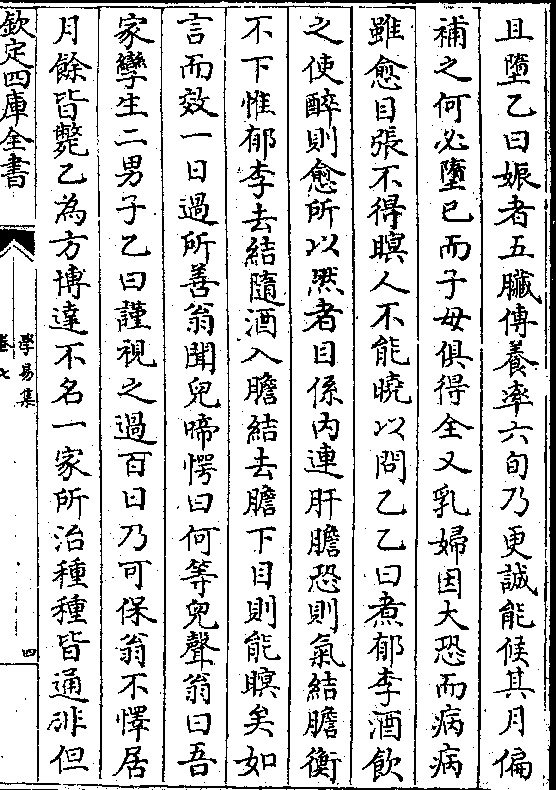 且墮乙曰娠者五臟傳養率六旬乃更誠能候其月偏
補之何必墮已而子母俱得全又乳婦因大恐而病病
雖愈目張不得瞑人不能曉以問乙乙曰煮郁李酒飲
之使醉則愈所以然者目係內連肝膽恐則氣結膽衡
不下惟郁李去結隨酒入膽結去膽下目則能瞑矣如
言而效一日過所善翁聞兒啼愕曰何等兒聲翁曰吾
家孿生二男子乙曰謹視之過百日乃可保翁不懌居
月餘皆斃乙為方博達不名一家所治種種皆通非但
欽定四庫全書
學易集
卷七
四